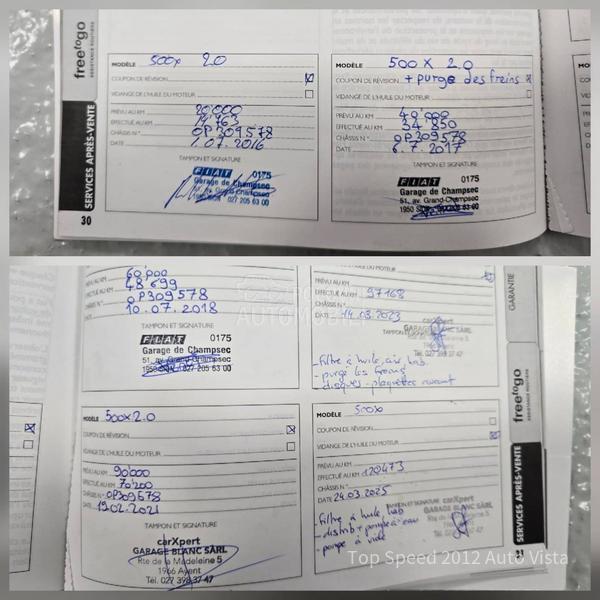 freetogo
ASSISTANCE ROUTIÈRE
SERVICES APRÈS-VENTE
30
MODÈLE 500x 2.0
COUPON DE RÉVISION
VIDANGE DE L'HUILE DU MOTEUR
PRÉVU AU KM 20'000
EFFECTUÉ AU KM
CHÂSSIS N° OP309578
DATE 1.07.2016
TAMPON ET SIGNATURE
FIAT 0175
Garage de Champsec
51, av. Grand-Champsec
1950 SION 027 205 63 00
MODÈLE 500 X 2.0
COUPON DE RÉVISION + purge des freins
VIDANGE DE L'HUILE DU MOTEUR
PRÉVU AU KM 40'000
EFFECTUÉ AU KM 34'850
CHÂSSIS N° OP309578
DATE 6.7.2017
TAMPON ET SIGNATURE
FIAT 0175
Garage de Champsec
51, av. Grand-Champsec
1950 SION 027 205 63 00
PRÉVU AU KM 60'000
EFFECTUÉ AU KM 48'699
CHÂSSIS N° OP309578
DATE 10.07.2018
TAMPON ET SIGNATURE
FIAT 0175
Garage de Champsec
51, av. Grand-Champsec
1950 SION 027 205 63 00
VIDANGE DE L'HUILE DU MOTEUR
PRÉVU AU KM
EFFECTUÉ AU KM 97168
CHÂSSIS N°
DATE 14.03.2023
TAMPON ET SIGNATURE
carXpert
GARAGE BLANC SÀRL
Tél. 027 398 37 47
- filtre à huile, air, hab
- purge les freins
- disques - plaquettes avant
GARANTIE
freetogo
ASSISTANCE ROUTIÈRE
SERVICES APRÈS-VENTE
MODÈLE 500x2.0
COUPON DE RÉVISION
VIDANGE DE L'HUILE DU MOTEUR
PRÉVU AU KM 90'000
EFFECTUÉ AU KM 70'200
CHÂSSIS N° OP309578
DATE 19.02.2021
TAMPON ET SIGNATURE
carXpert
GARAGE BLANC SÀRL
Rte de la Madeleine 5
1966 Ayent
Tél. 027 398 37 47
MODÈLE 500x
COUPON DE RÉVISION
VIDANGE DE L'HUILE DU MOTEUR
PRÉVU AU KM
EFFECTUÉ AU KM 120473
CHÂSSIS N°
DATE 24.03.2025
TAMPON ET SIGNATURE
carXpert
GARAGE BLANC SÀRL
- filtre à huile, hab
- distrib + pompe à eau
- pompe à vide
Top Speed 2012 Auto Vista